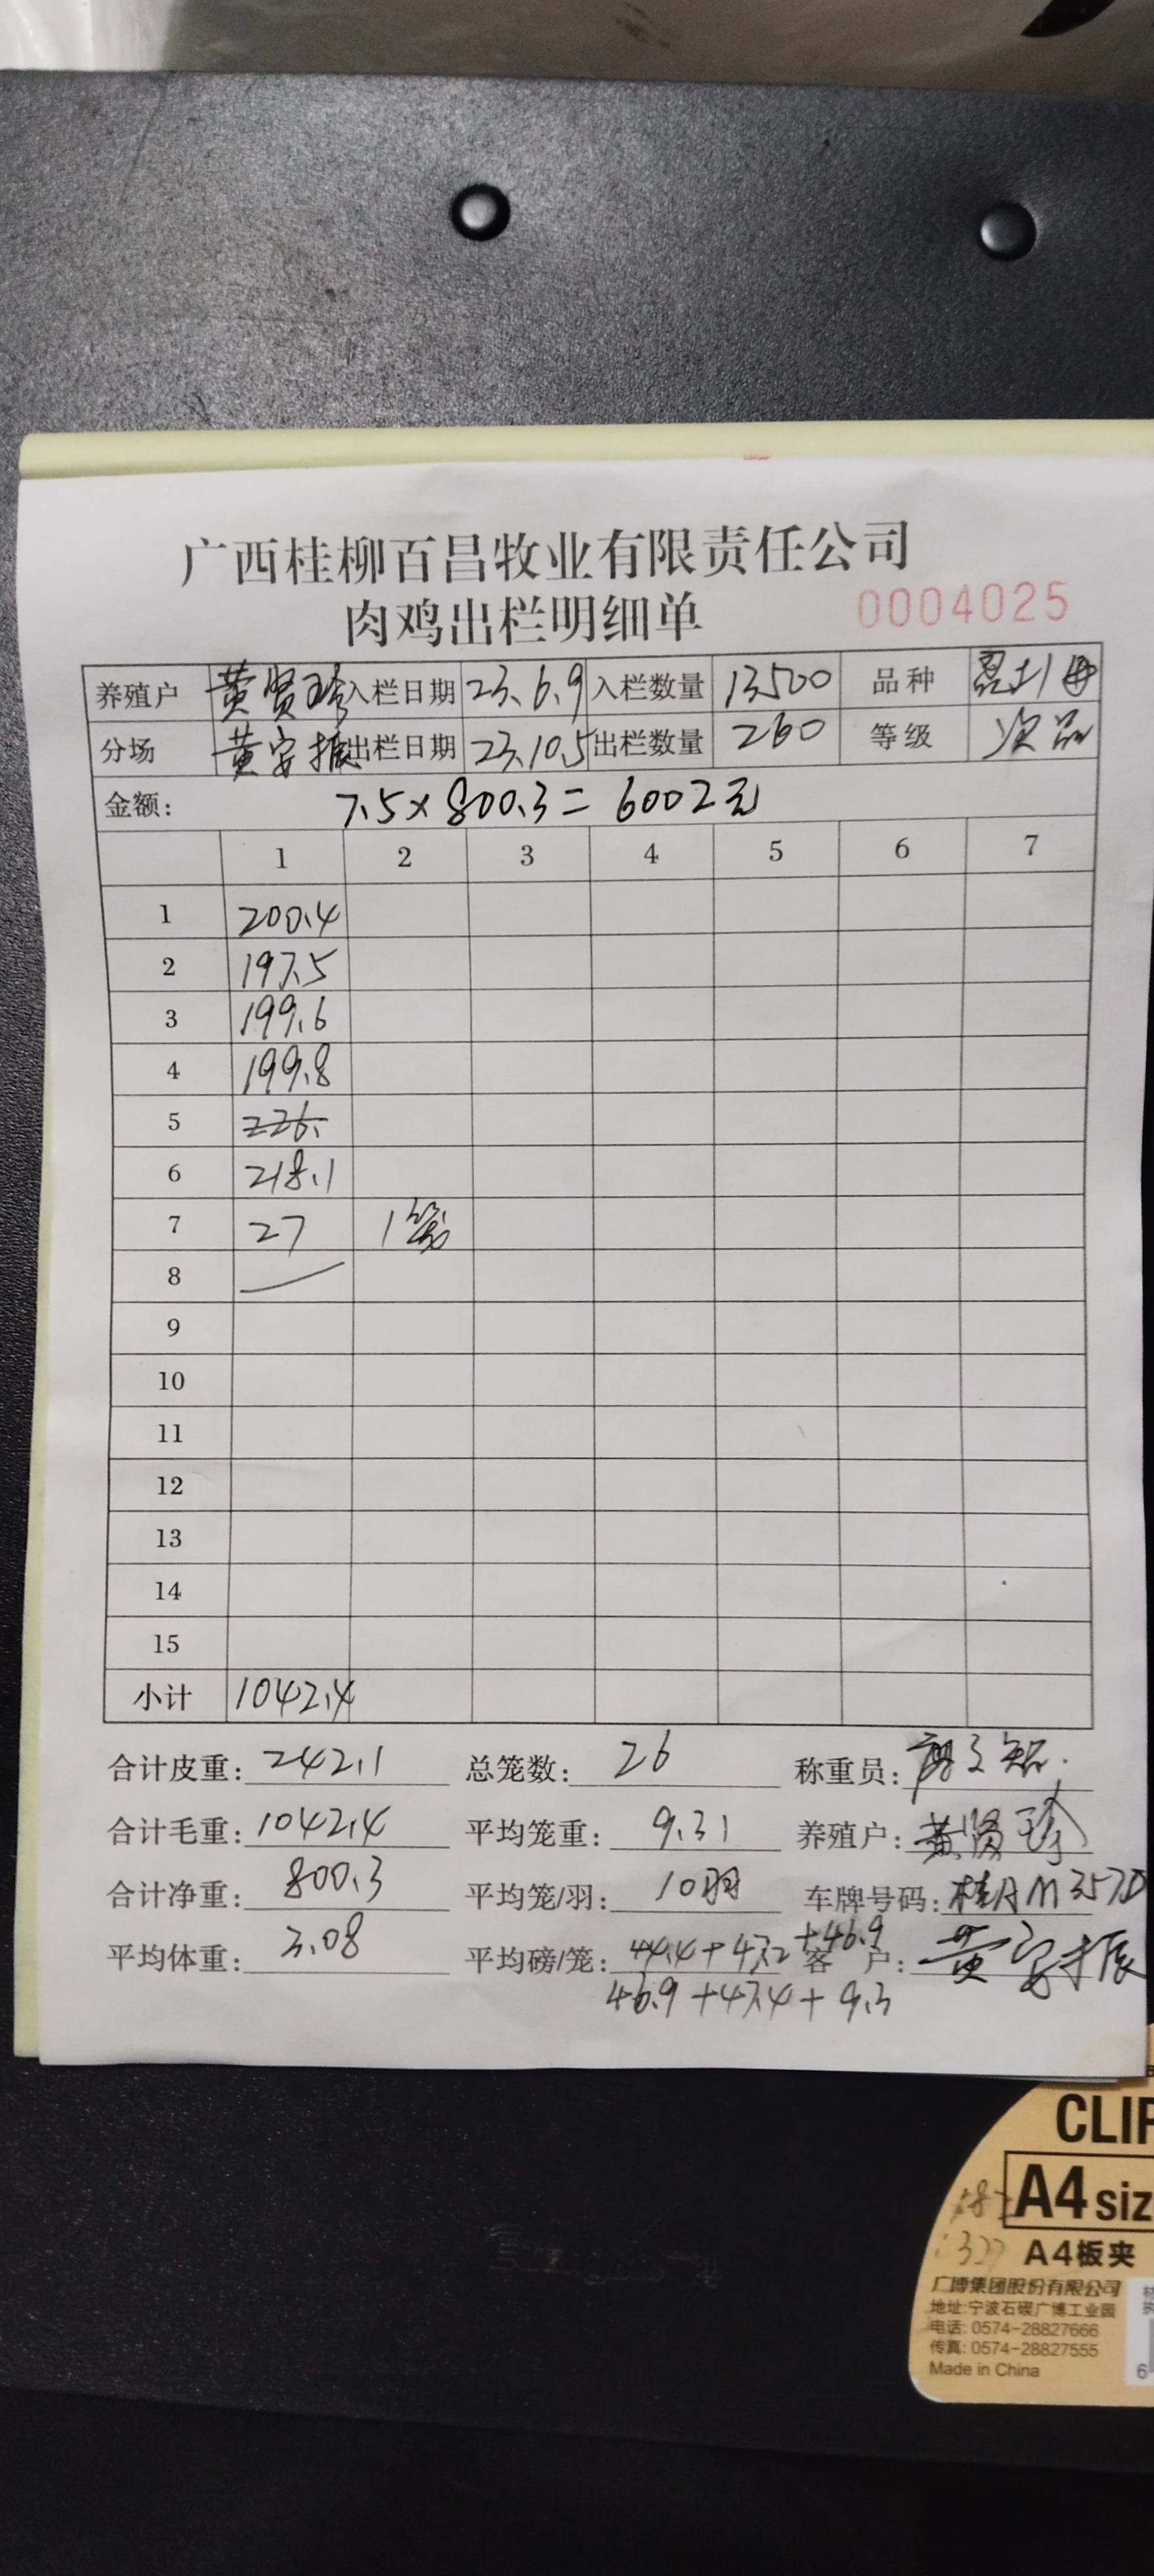 广西桂柳百昌牧业有限责任公司
肉鸡出栏明细单
0004025
养殖户 黄贤珍 入栏日期 23.6.9 入栏数量 13500 品种
分场 黄安振 出栏日期 23.10.5 出栏数量 260 等级 次品
金额: 7.5×800.3=6002元
1 2 3 4 5 6 7
1 200.4
2 197.5
3 199.6
4 199.8
5 226.
6 218.1
7 27 1笼
8
9
10
11
12
13
14
15
小计 1042.4
合计皮重: 242.1 总笼数: 26 称重员:
合计毛重: 1042.4 平均笼重: 9.31 养殖户: 黄贤珍
合计净重: 800.3 平均笼/羽: 10羽 车牌号码:
平均体重: 3.08 平均磅/笼: 44.4+47.2+46.9 客 户: 黄安振
46.9+47.4+9.3
CLIP
A4 siz
A4板夹
广博集团股份有限公司
地址:宁波石碶广博工业园
电话: 0574-28827666
传真: 0574-28827555
Made in China
6